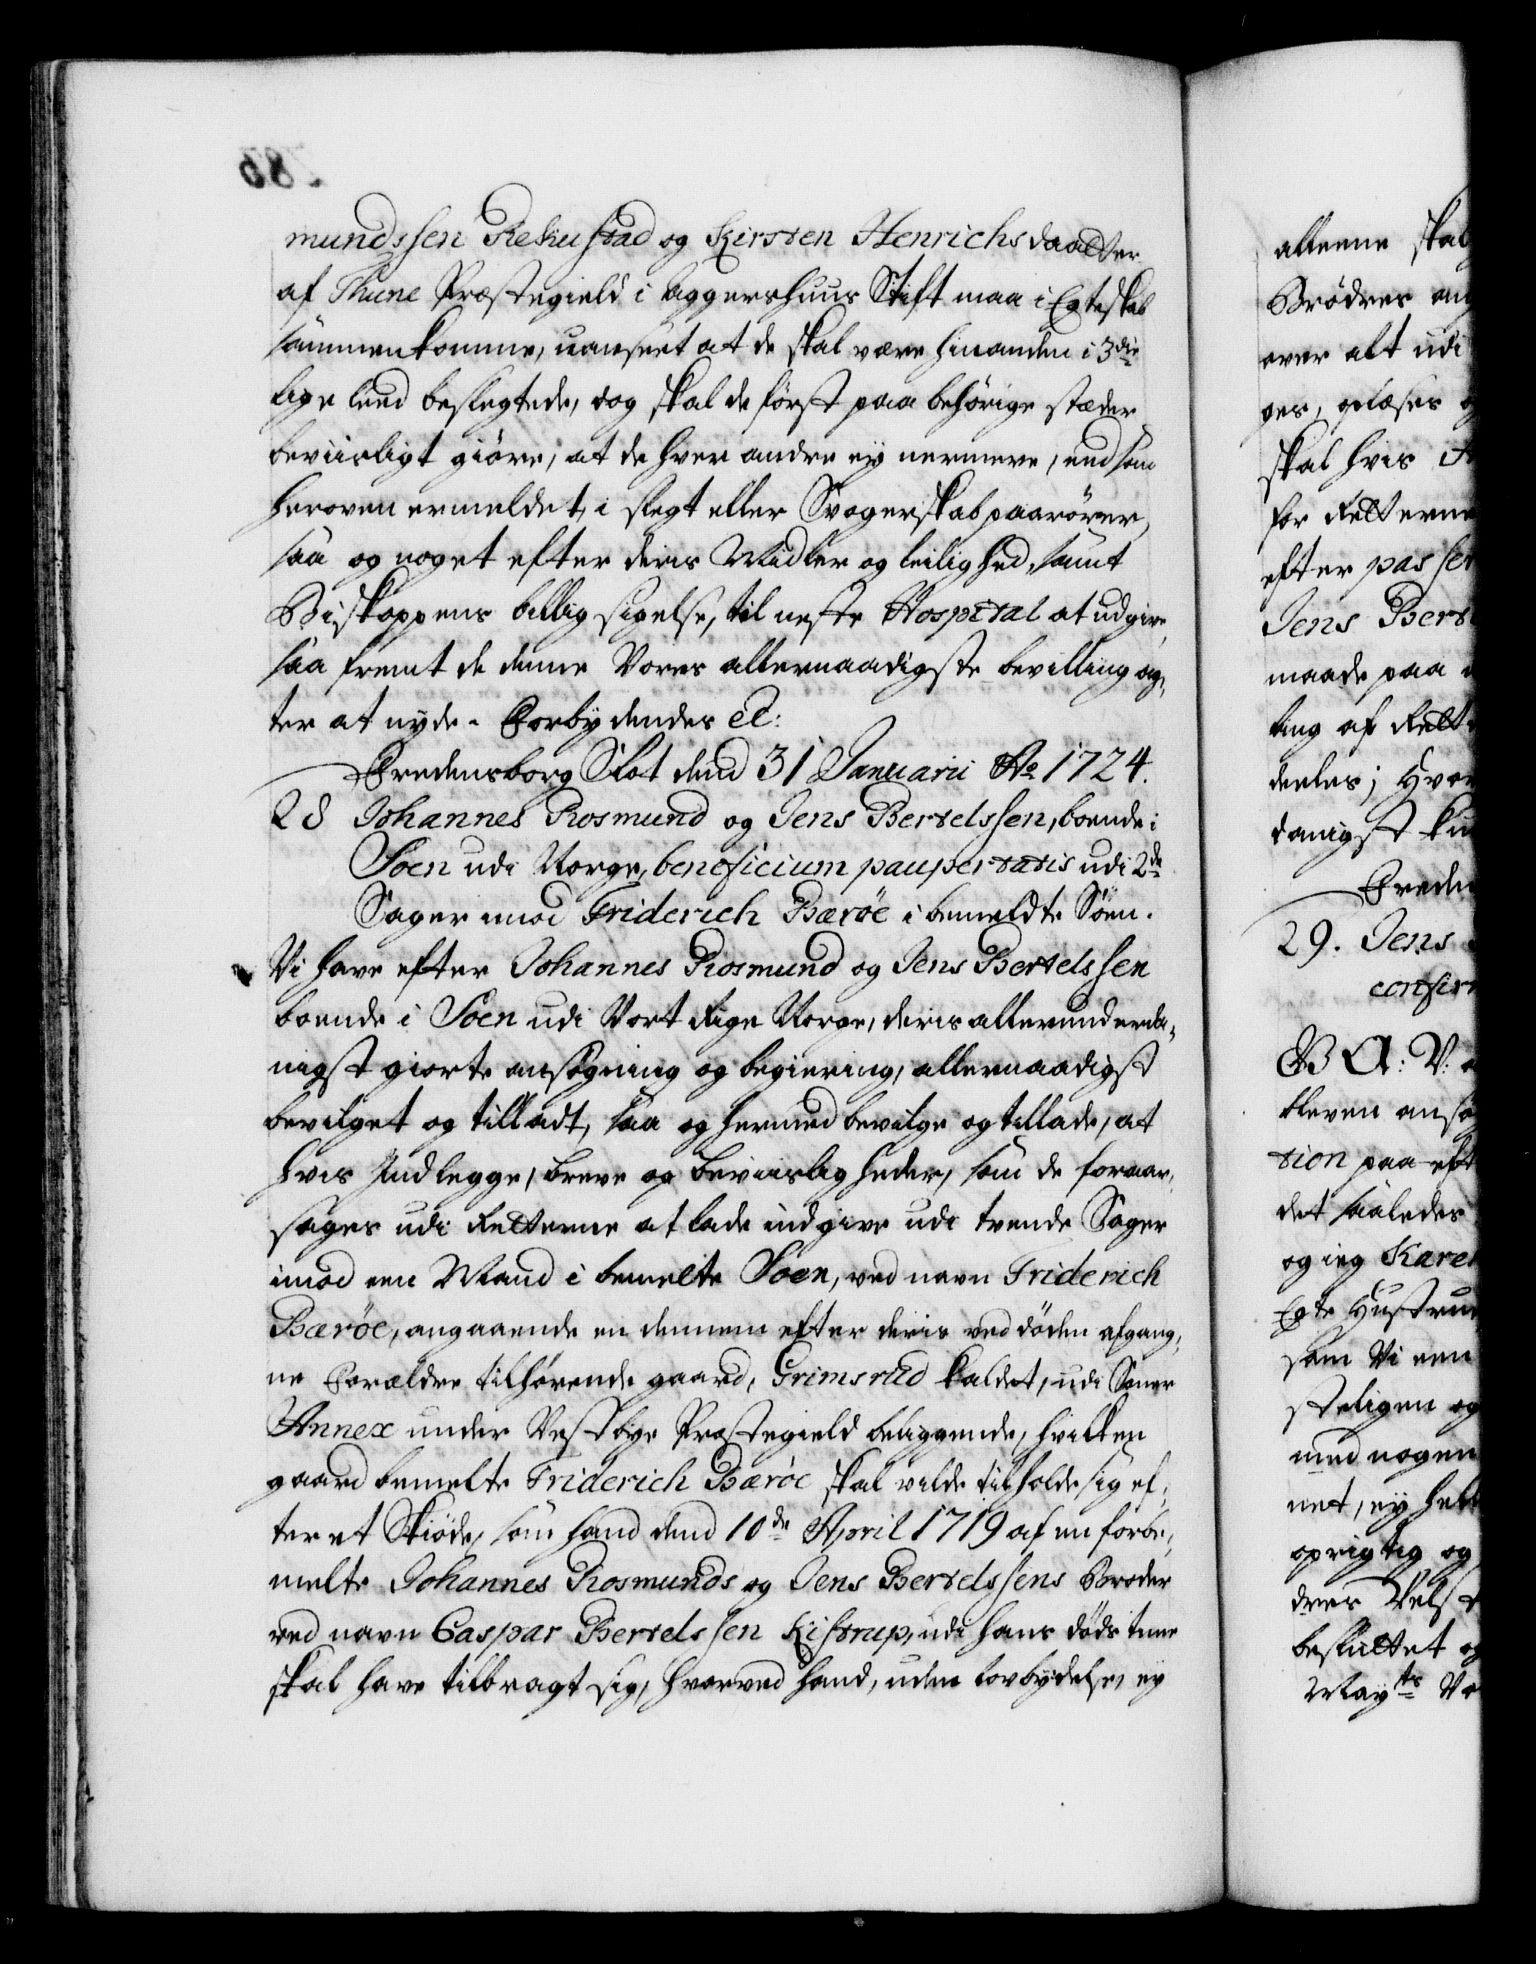 mundssen Rekustad og Kirsten Henrichsdaatter
af Thune Præstegield i Aggershuus Stift maa i Egteskab
sammenkomme, uanseet at de skal være hinanden i 3die
lige leed beslegtede, dog skal de først paa behörige stæder
beviisligt giöre, at de hver andre ey nermere, end som
heroven ermeldet, i slegt eller Svogerskab paarörer,
saa og noget efter deris Midler og leilighed, samt
Biskoppens billig sigelse, til neste Hospital at udgive,
saa fremt de denne Vores allernaadigste bevilling ag,
ter at nyde. Forbydendes etc:
Fredensborg Slot dend 31 Januarii Ao 1724.
28 Johannes Rosmund og Jens Bertelssen, boende i
Soen udi Norge, beneficium paupertatis udi 2de
Sager imod Friderich Bærøe i bemeldte Söen.
Vi have efter Johannes Rosmund og Jens Bertelssen
boende i Soen udi Vort Rige Norge, deris allerunderda,
nigst giorte ansögning og begiering, allernaadigst
bevilget og tilladt, saa og hermed bevilge og tillade, at
hvis Indlegge, breve og beviisligheder, som de foraar,
sages udi Retterne at lade indgive udi tvende Sager
imod een Mand i bemelte Soen, ved navn Friderich
Bærøe, angaaende en dennem efter deris ved döden afgang,
ne Forældre tilhörende gaard, Grimsrud kaldet, udi Soner
Annex under Vestbye Præstegield beliggende, hvilken
gaard bemelte Friderich Bærøe skal vilde tilholde sig ef,
ter et Skiöde, som hand dend 10de April 1719 af en forbe,
melte Johannes Rosmunds og Jens Bertelssens Broder
ved navn Caspar Bertelssen Kistrup, udi hans döds time
skal have tilbragt sig, hvorved hand, uden lovbydelse, ey
alleene skal
Brödres
over alt udi
ges, oplæses
skal hvis
for Retterne
efter passer
Jens Bert
maade paa
ling af Rett
deeles; Hvor
danigst
Freden
29. Jens
confirm
G A: V:
Kleven ansö
tion paa eft
det saaledes
og ieg Karen
Egte Hustrue
som Vi een
steligen og
med nogen
net, ey hell
oprigtig og
dres Velst
besluttet og
Mayts Vo